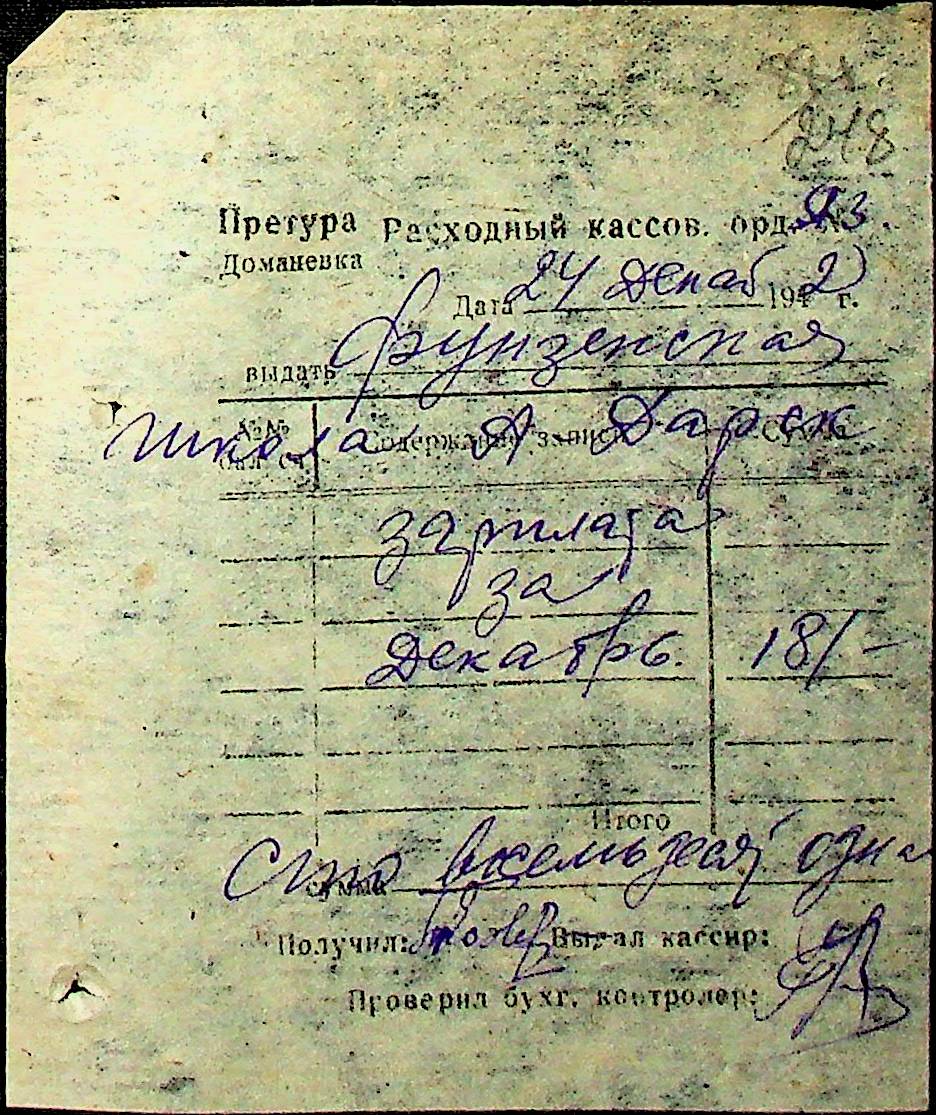 248
Претура Расходный кассов. орд. № 93.
Доманевка
Дата 24 Декаб 1942 г.
выдать Фрунзенская
школа А Дарск
№№ Содержание записи Сумма
зарплата
за
Декабрь. 181-
Итого
сумма Сто восемьдесят одна
Получил: Выдал кассир:
Проверил бухг. контролер: